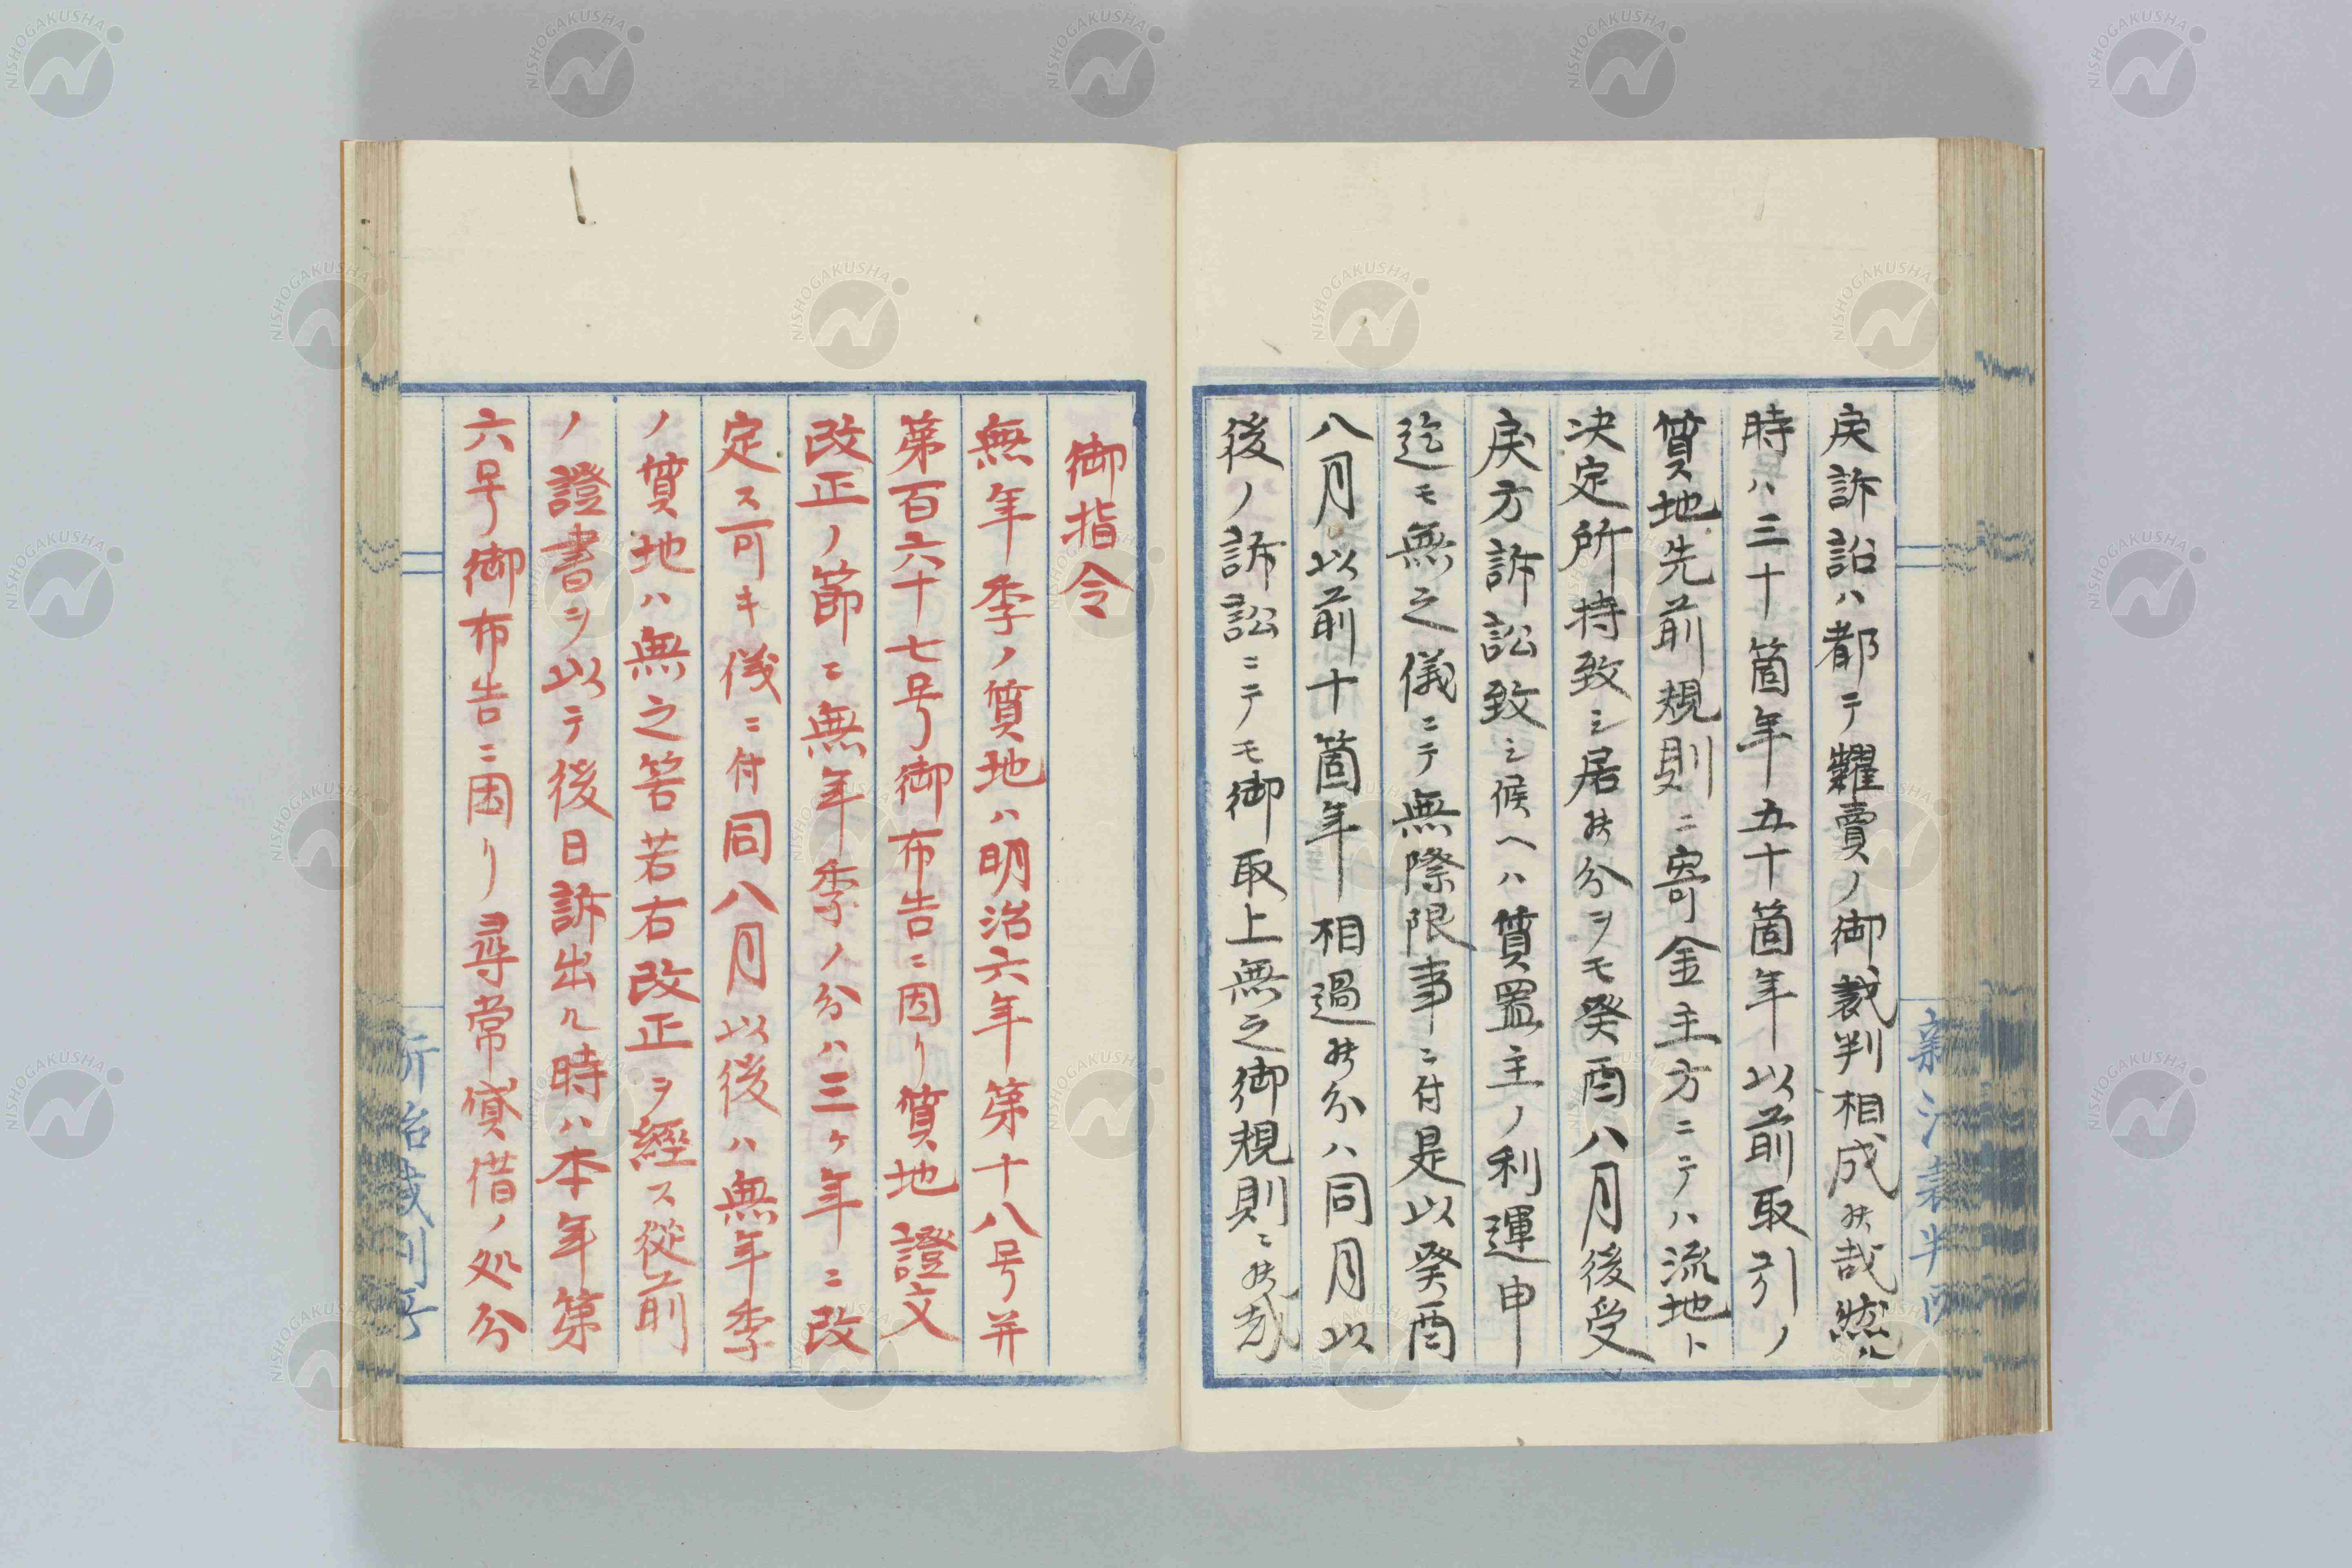 戻訴訟ハ都テ糶賣ノ御裁判相成候哉然ル
時ハ三十箇年五十箇年以前取引ノ
質地先前規則ニ寄金主方ニテハ流地ト
決定所持致シ居候分ヲモ癸酉八月後受
戻方訴訟致シ候ヘハ質置主ノ利運申
迄モ無之儀ニテ無際限事ニ付是以癸酉
八月以前十箇年相過候分ハ同月以
後ノ訴訟ニテモ御取上無之御規則ニ候哉
御指令
無年季ノ質地ハ明治六年第十八号并
第百六十七号御布告ニ因リ質地證文
改正ノ節ニ無年季ノ分ハ三ヶ年ニ改
定ス可キ儀ニ付同八月以後ハ無年季
ノ質地ハ無之筈若右改正ヲ經ス從前
ノ證書ヲ以テ後日訴出ル時ハ本年第
六号御布告ニ因リ尋常貸借ノ処分
NISHOGAKUSHA